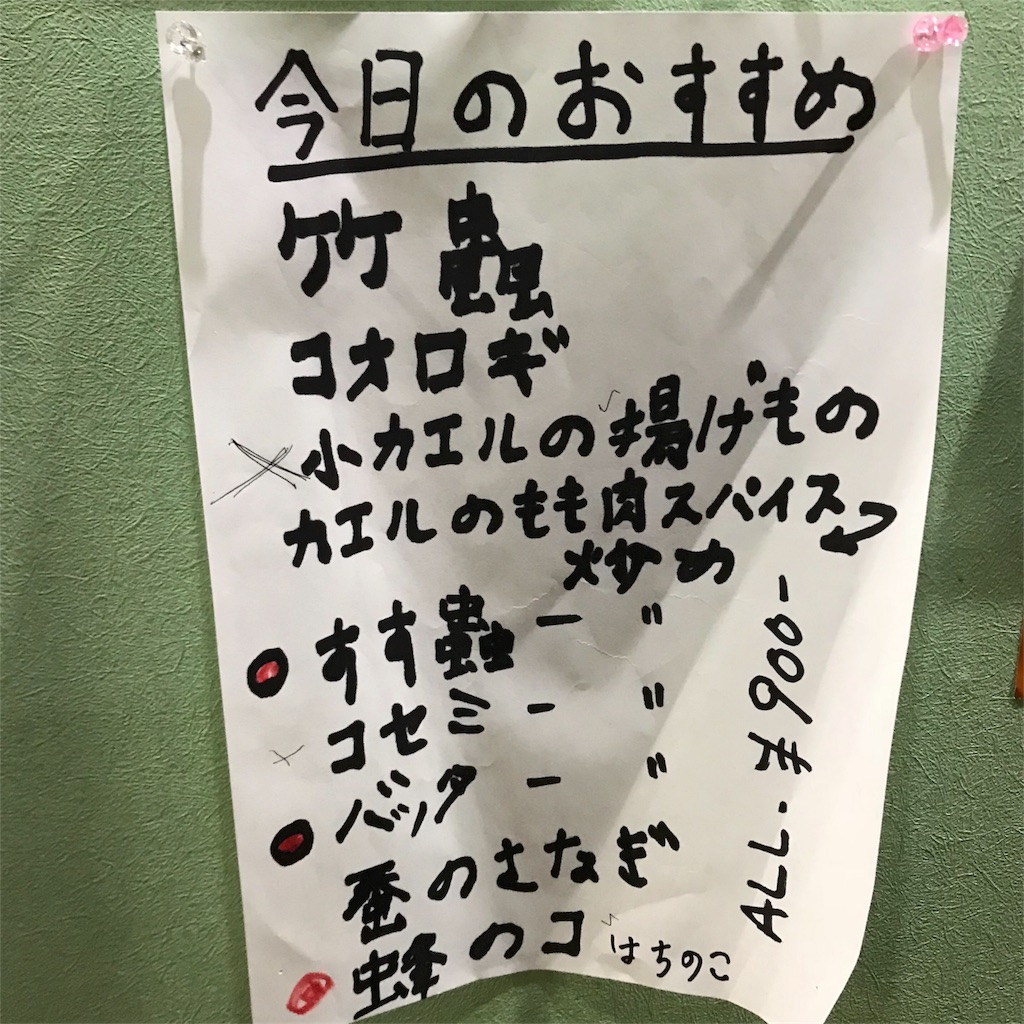 今日のおすすめ
竹蟲
コオロギ
小カエルの揚げもの
カエルのもも肉スパイス
炒め
すす蟲 － 〃
コセミ － 〃
バッタ － 〃
蚕のさなぎ
蜂のコ はちのこ
ALL. ¥900-